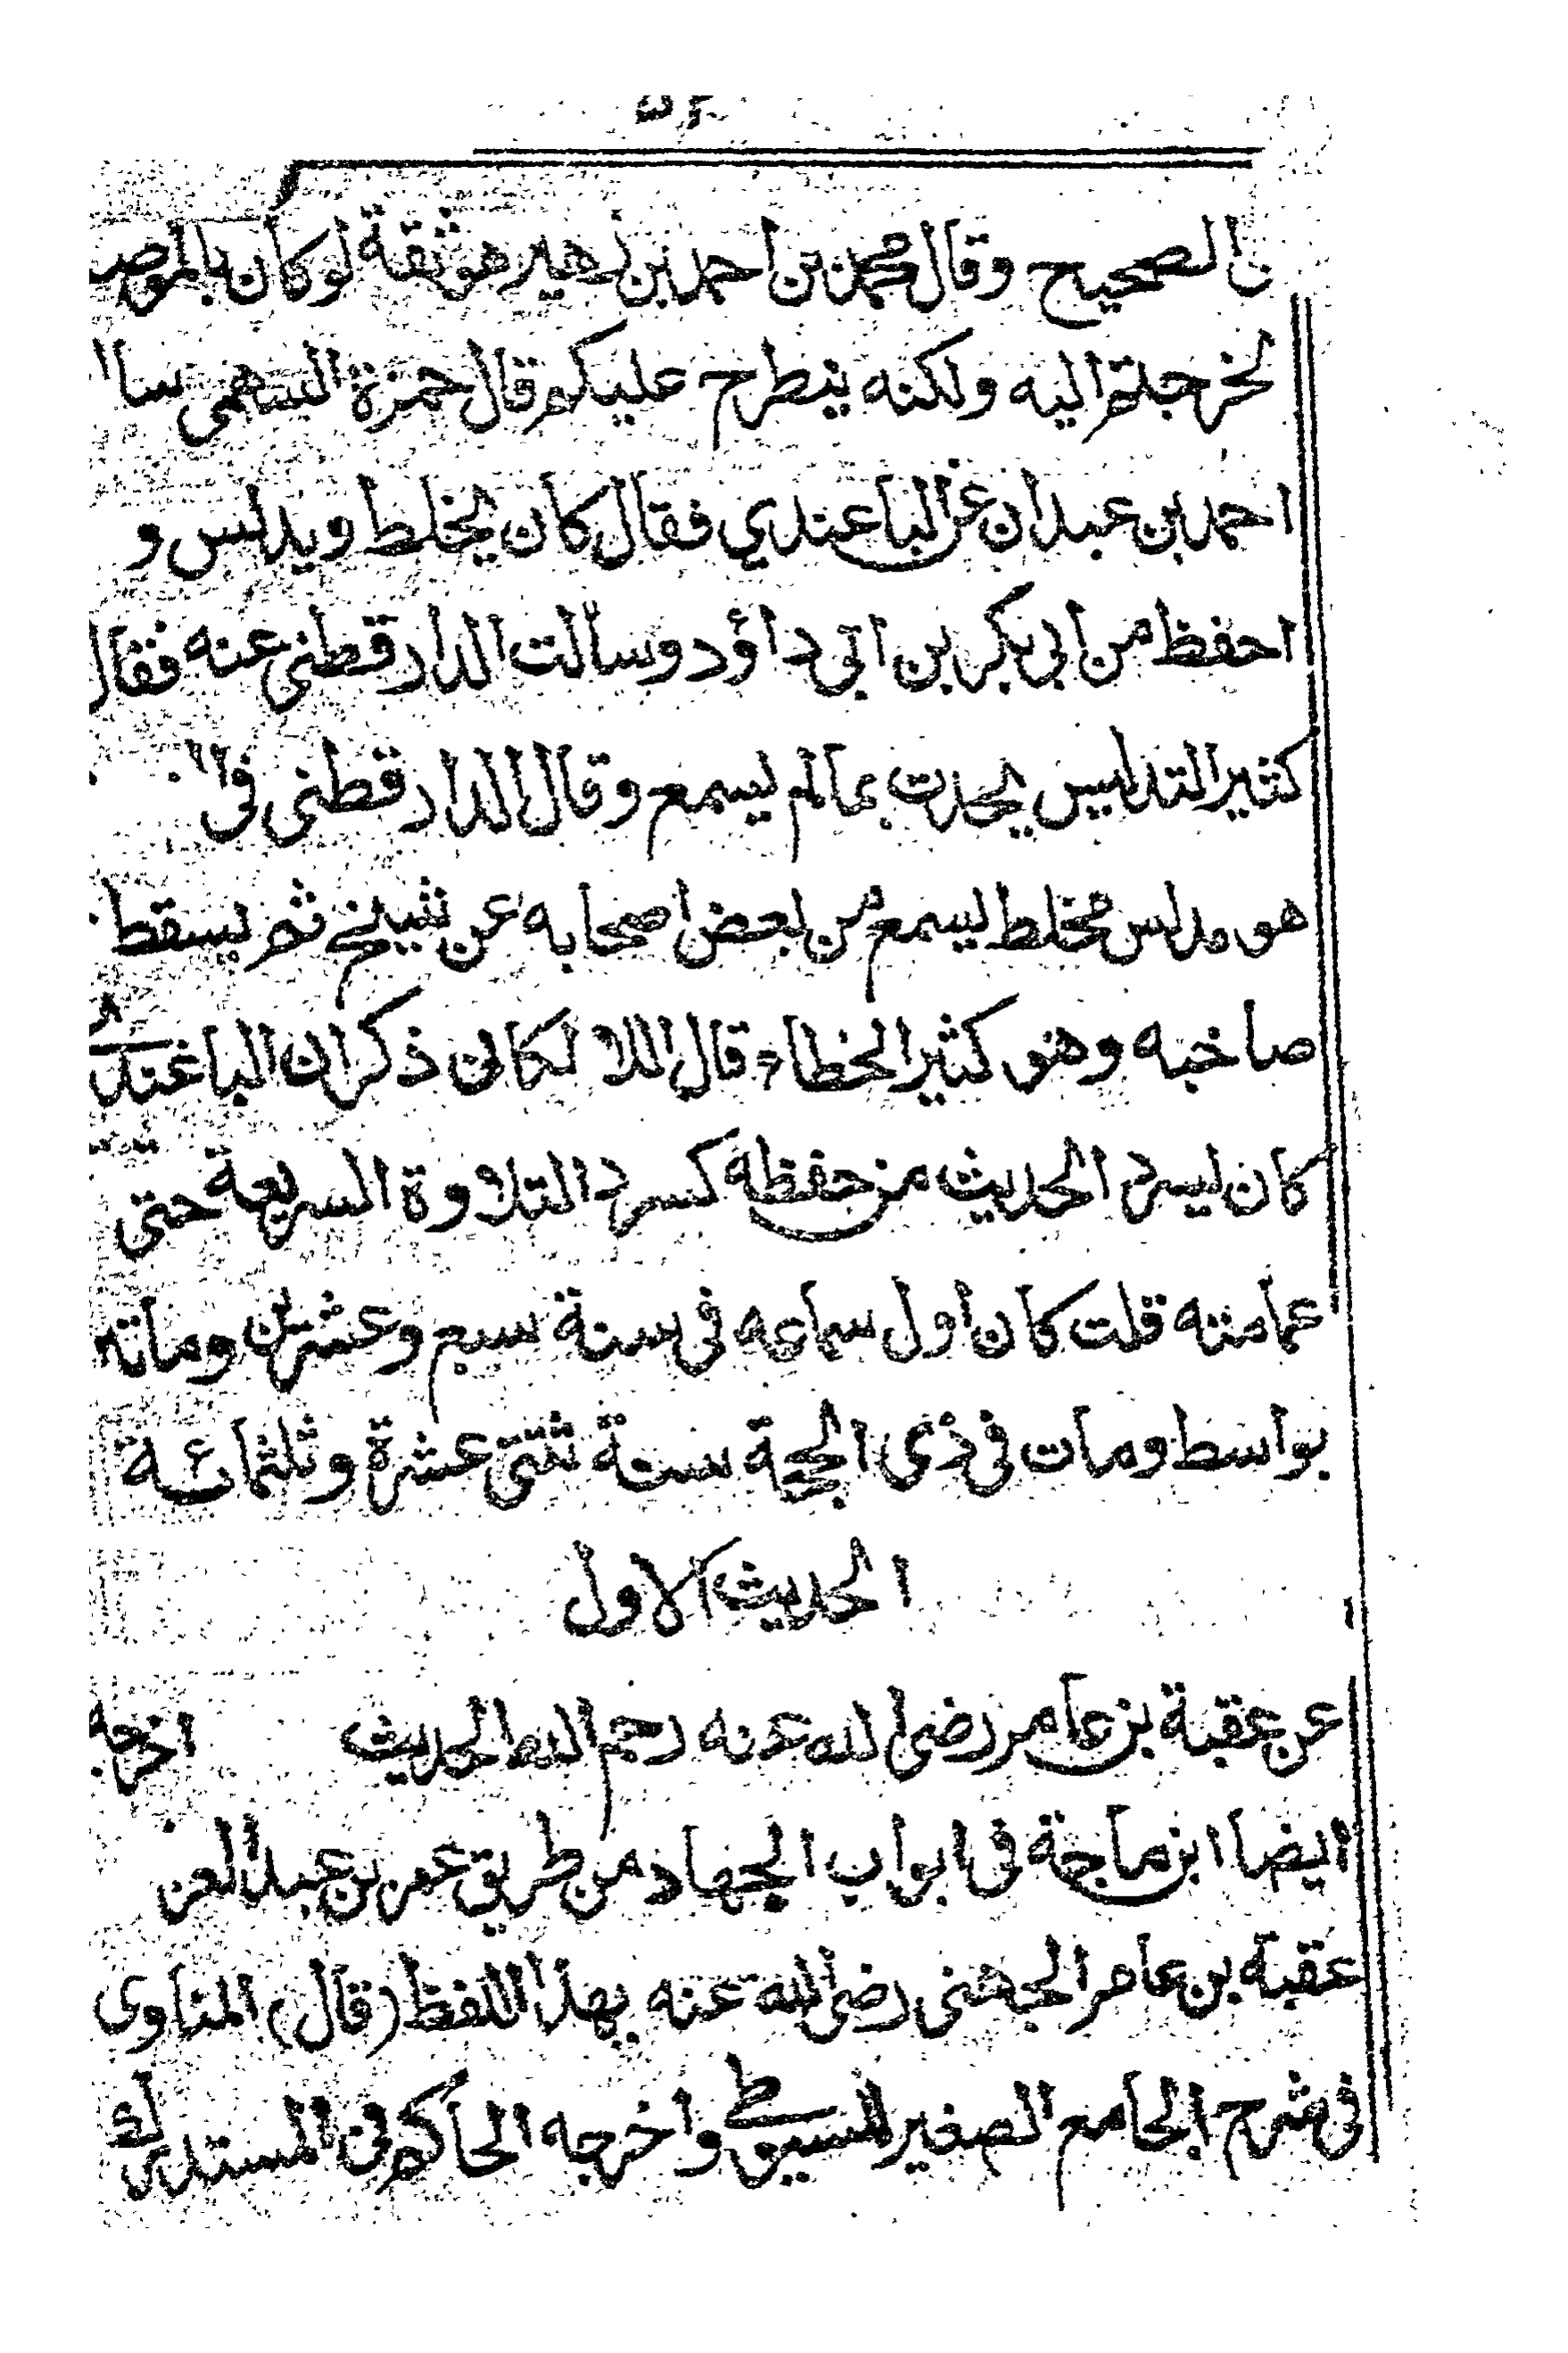 الصحيح وقال محمد بن احمد بن زهير هو ثقة لو كان بالموصل
لخرجتم اليه ولكنه ينطرح عليكم قال حمزة السهمى سا
احمد بن عبدان عن الباغندي فقال كان يخلط ويدلس و
احفظ من ابي بكر بن ابي داؤد وسألت الدارقطنى عنه فقال
كثير التدليس يحدث بما لم يسمع وقال الدارقطنى فى
هو مدلس مخلط يسمع من بعض اصحابه عن شيخ ثم يسقط
صاحبه وهو كثير الخطاء قال اللالكائى ذكر ان الباغندى
كان يسرد الحديث من حفظه كسرد التلاوة السريعة حتى
عمامته قلت كان اول سماعه فى سنة سبع وعشرين ومأته
بواسط ومات فى ذى الحجة سنة ثنتى عشرة وثلثمائة
الحديث الاول
عن عقبة بن عامر رضى الله عنه رحم الله الحديث اخرجه
ايضا ابن ماجة فى ابواب الجهاد من طريق عمر بن عبد العز
عقبة بن عامر الجهنى رضى الله عنه بهذا اللفظ (قال) المناوى
فى شرح الجامع الصغير للسيوطى واخرجه الحاكم فى المستدرك